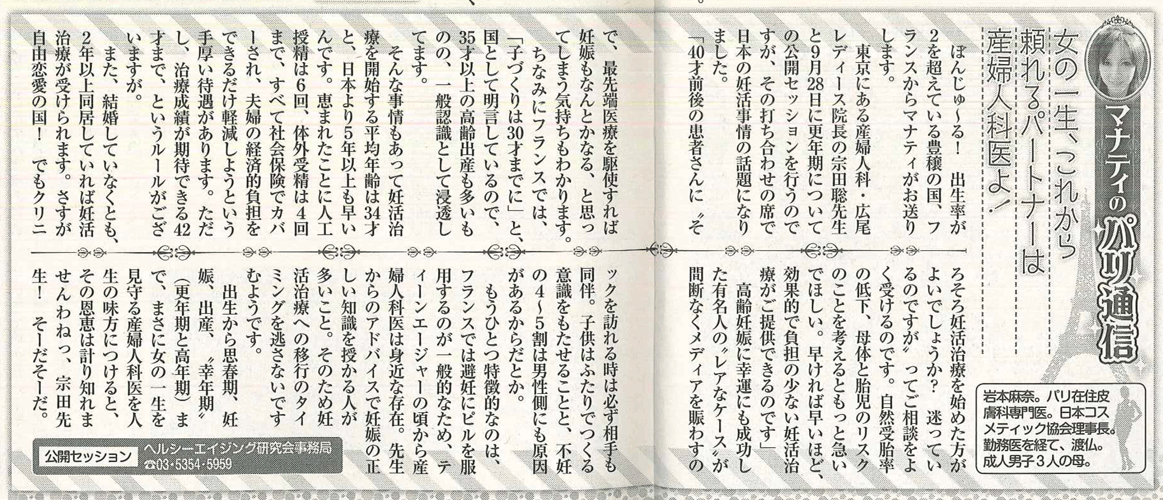 マナティのパリ通信
女の一生、これから
頼れるパートナーは
産婦人科医よ！
岩本麻奈。パリ在住皮
膚科専門医。日本コス
メティック協会理事長。
勤務医を経て、渡仏。
成人男子3人の母。
ぼんじゅ〜る！　出生率が
2を超えている豊穣の国、フ
ランスからマナティがお送り
します。
東京にある産婦人科・広尾
レディース院長の宗田聡先生
と9月28日に更年期について
の公開セッションを行うので
すが、その打ち合わせの席で
日本の妊活事情の話題になり
ました。
「40才前後の患者さんに〝そ
ろそろ妊活治療を始めた方が
よいでしょうか？　迷ってい
るのですが〟ってご相談をよ
く受けるのです。自然受胎率
の低下、母体と胎児のリスク
のことを考えるともっと急い
でほしい。早ければ早いほど、
効果的で負担の少ない妊活治
療がご提供できるのです」
高齢妊娠に幸運にも成功し
た有名人の〝レアなケース〟が
間断なくメディアを賑わすの
で、最先端医療を駆使すれば
妊娠もなんとかなる、と思っ
てしまう気持ちもわかります。
ちなみにフランスでは、
「子づくりは30才までに」と、
国として明言しているので、
35才以上の高齢出産も多いも
のの、一般認識として浸透し
てます。
そんな事情もあって妊活治
療を開始する平均年齢は34才
と、日本より5年以上も早い
んです。恵まれたことに人工
授精は6回、体外受精は4回
まで、すべて社会保険でカバ
ーされ、夫婦の経済的負担を
できるだけ軽減しようという
手厚い待遇があります。ただ
し、治療成績が期待できる42
才まで、というルールがござ
いますが。
また、結婚していなくとも、
2年以上同居していれば妊活
治療が受けられます。さすが
自由恋愛の国！　でもクリニ
ックを訪れる時は必ず相手も
同伴。子供はふたりでつくる
意識をもたせることと、不妊
の4〜5割は男性側にも原因
があるからだとか。
もうひとつ特徴的なのは、
フランスでは避妊にピルを服
用するのが一般的なため、テ
ィーンエージャーの頃から産
婦人科医は身近な存在。先生
からのアドバイスで妊娠の正
しい知識を授かる人が
多いこと。そのため妊
活治療への移行のタイ
ミングを逃さないです
むようです。
出生から思春期、妊
娠、出産、〝幸年期〟
（更年期と高年期）ま
で、まさに女の一生を
見守る産婦人科医を人
生の味方につけると、
その恩恵は計り知れま
せんわねっ、宗田先
生！　そーだそーだ。
公開セッション
ヘルシーエイジング研究会事務局
☎03・5354・5959